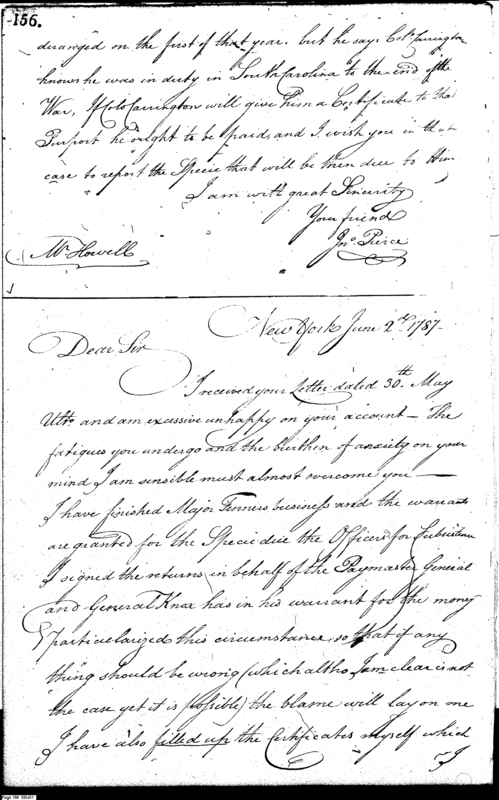 156.
deranged on the first of that year. but he says Colo. Carrington
knows he was in duty in South Carolina to the end of the
War, If Colo Carrington will give him a Certificate to that
Purport he ought to be paid, and I wish you in that
case to report the Specie that will be then due to Him
I am with great Sincerity
Your friend
Jno. Pierce
Mr Howell
New York June 2d. 1787-
Dear Sir
I received your Letter dated 30.th May
Ulto and am excessive unhappy on your account - The
fatigues you undergo and the burthen of anxiety on your
mind I am sensible must almost overcome you —
I have finished Major Fenners business and the warrants
are granted for the Specie due the Officers for Subsistence
I signed the returns in behalf of the Paymaster General
and General Knox has in his warrant for the money
particularized this circumstance, so that if any
thing should be wrong (which altho I am clear is not
the case yet it is possible) the blame will lay on me
I have also filled up the Certificates myself which
I
Page 156 DDJ01